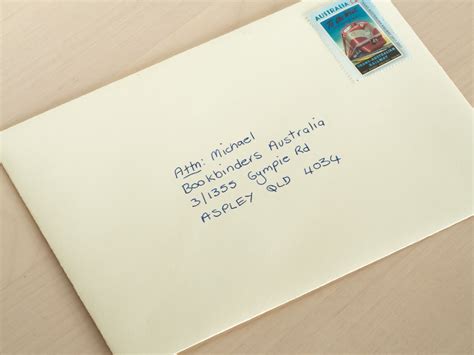 AUSTRALIA
Attn: Michael
Bookbinders Australia
3/1355 Gympie Rd
ASPLEY QLD 4034